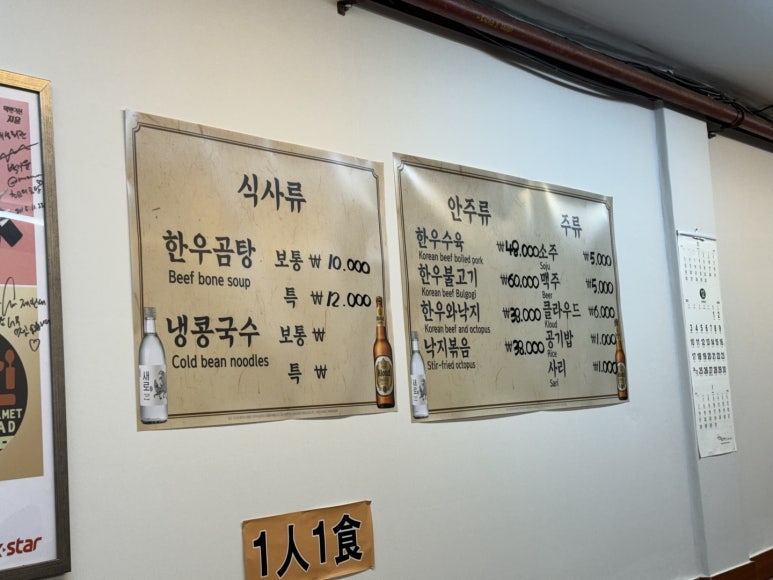 식사류
한우곰탕 보통 ₩ 10.000
Beef bone soup
특 ₩ 12.000
냉콩국수 보통 ₩
Cold bean noodles
특 ₩
새로
안주류
한우수육 ₩48.000
Korean beef boiled pork
한우불고기 ₩60.000
Korean beef Bulgogi
한우와낙지 ₩38.000
Korean beef and octopus
낙지볶음 ₩38.000
Stir-fried octopus
주류
소주 ₩5.000
Soju
맥주 ₩5.000
Beer
클라우드 ₩6.000
Kloud
공기밥 ₩1.000
Rice
사리 ₩1.000
Sari
새로
1人1食
star